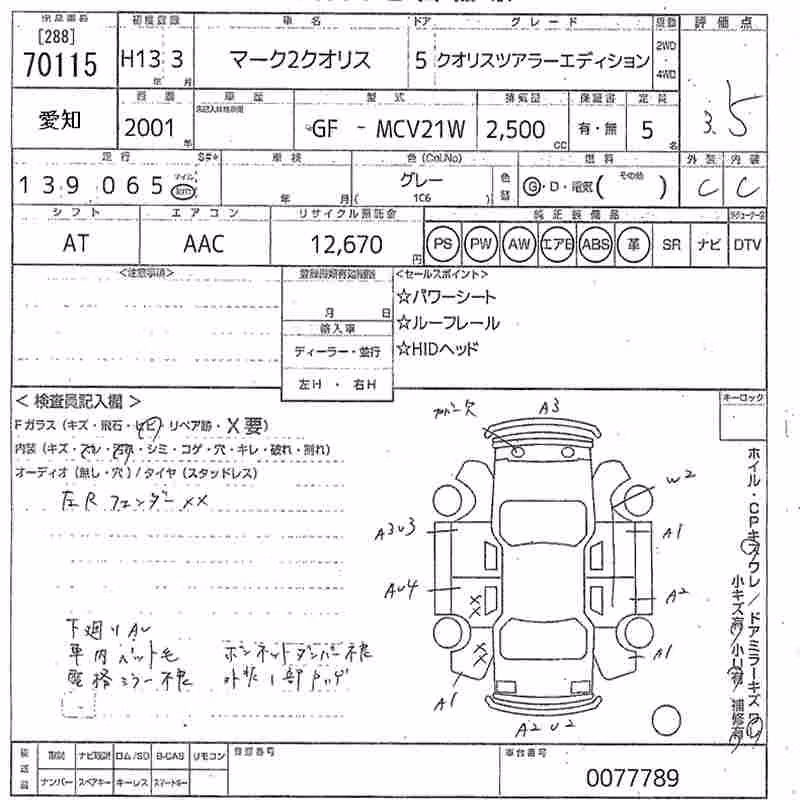 出品番号 初度登録 車 名 ドア グ レ ー ド 駆動 評 価 点
[288]
70115 H13 3 年 月 マーク2クオリス 5 クオリスツアラーエディション 2WD ・ 4WD 3.5
愛知 2001 年 型 式 排気量 保証書 定 員
GF - MCV21W 2,500 CC 有・無 5 名
走 行 S#* 車 検 色 (Col.No) 燃 料 外 装 内 装
139065 マイル 年 月 グレー ( 1C6 ) 色替 G・D・電気( その他 ) C C
シ フ ト エ ア コ ン リサイクル預託金 純 正 装 備 品
AT AAC 12,670 円 PS PW AW エアB ABS 革 SR ナビ DTV
<注意事項> <セールスポイント>
☆パワーシート
月 日 ☆ルーフレール
輸入車
☆HIDヘッド
ディーラー・並行
左H ・ 右H
< 検査員記入欄 > キーロック
Fガラス(キズ・飛石・ヒビ・リペア跡・X要)
内装(キズ・・・シミ・コゲ・穴・キレ・破れ・割れ)
オーディオ(無し・穴)/タイヤ(スタッドレス)
左R フェンダー XX
カバー欠 A3
W2
A3U3 A1
AU4 A2
XX
XX
A1 A1
A2U2
ホイル・CPキズ/ワレ/ドアミラーキズ ワレ
小キズ有/小凹有/補修有
下廻りAU
車内ペット毛 ボンネットダンパー不良
電格ミラー不良 外装1部タッチ
ナンバー スペアキー キーレス スマートキー
ロム/SD B-CAS リモコン 登録番号 車台番号
0077789